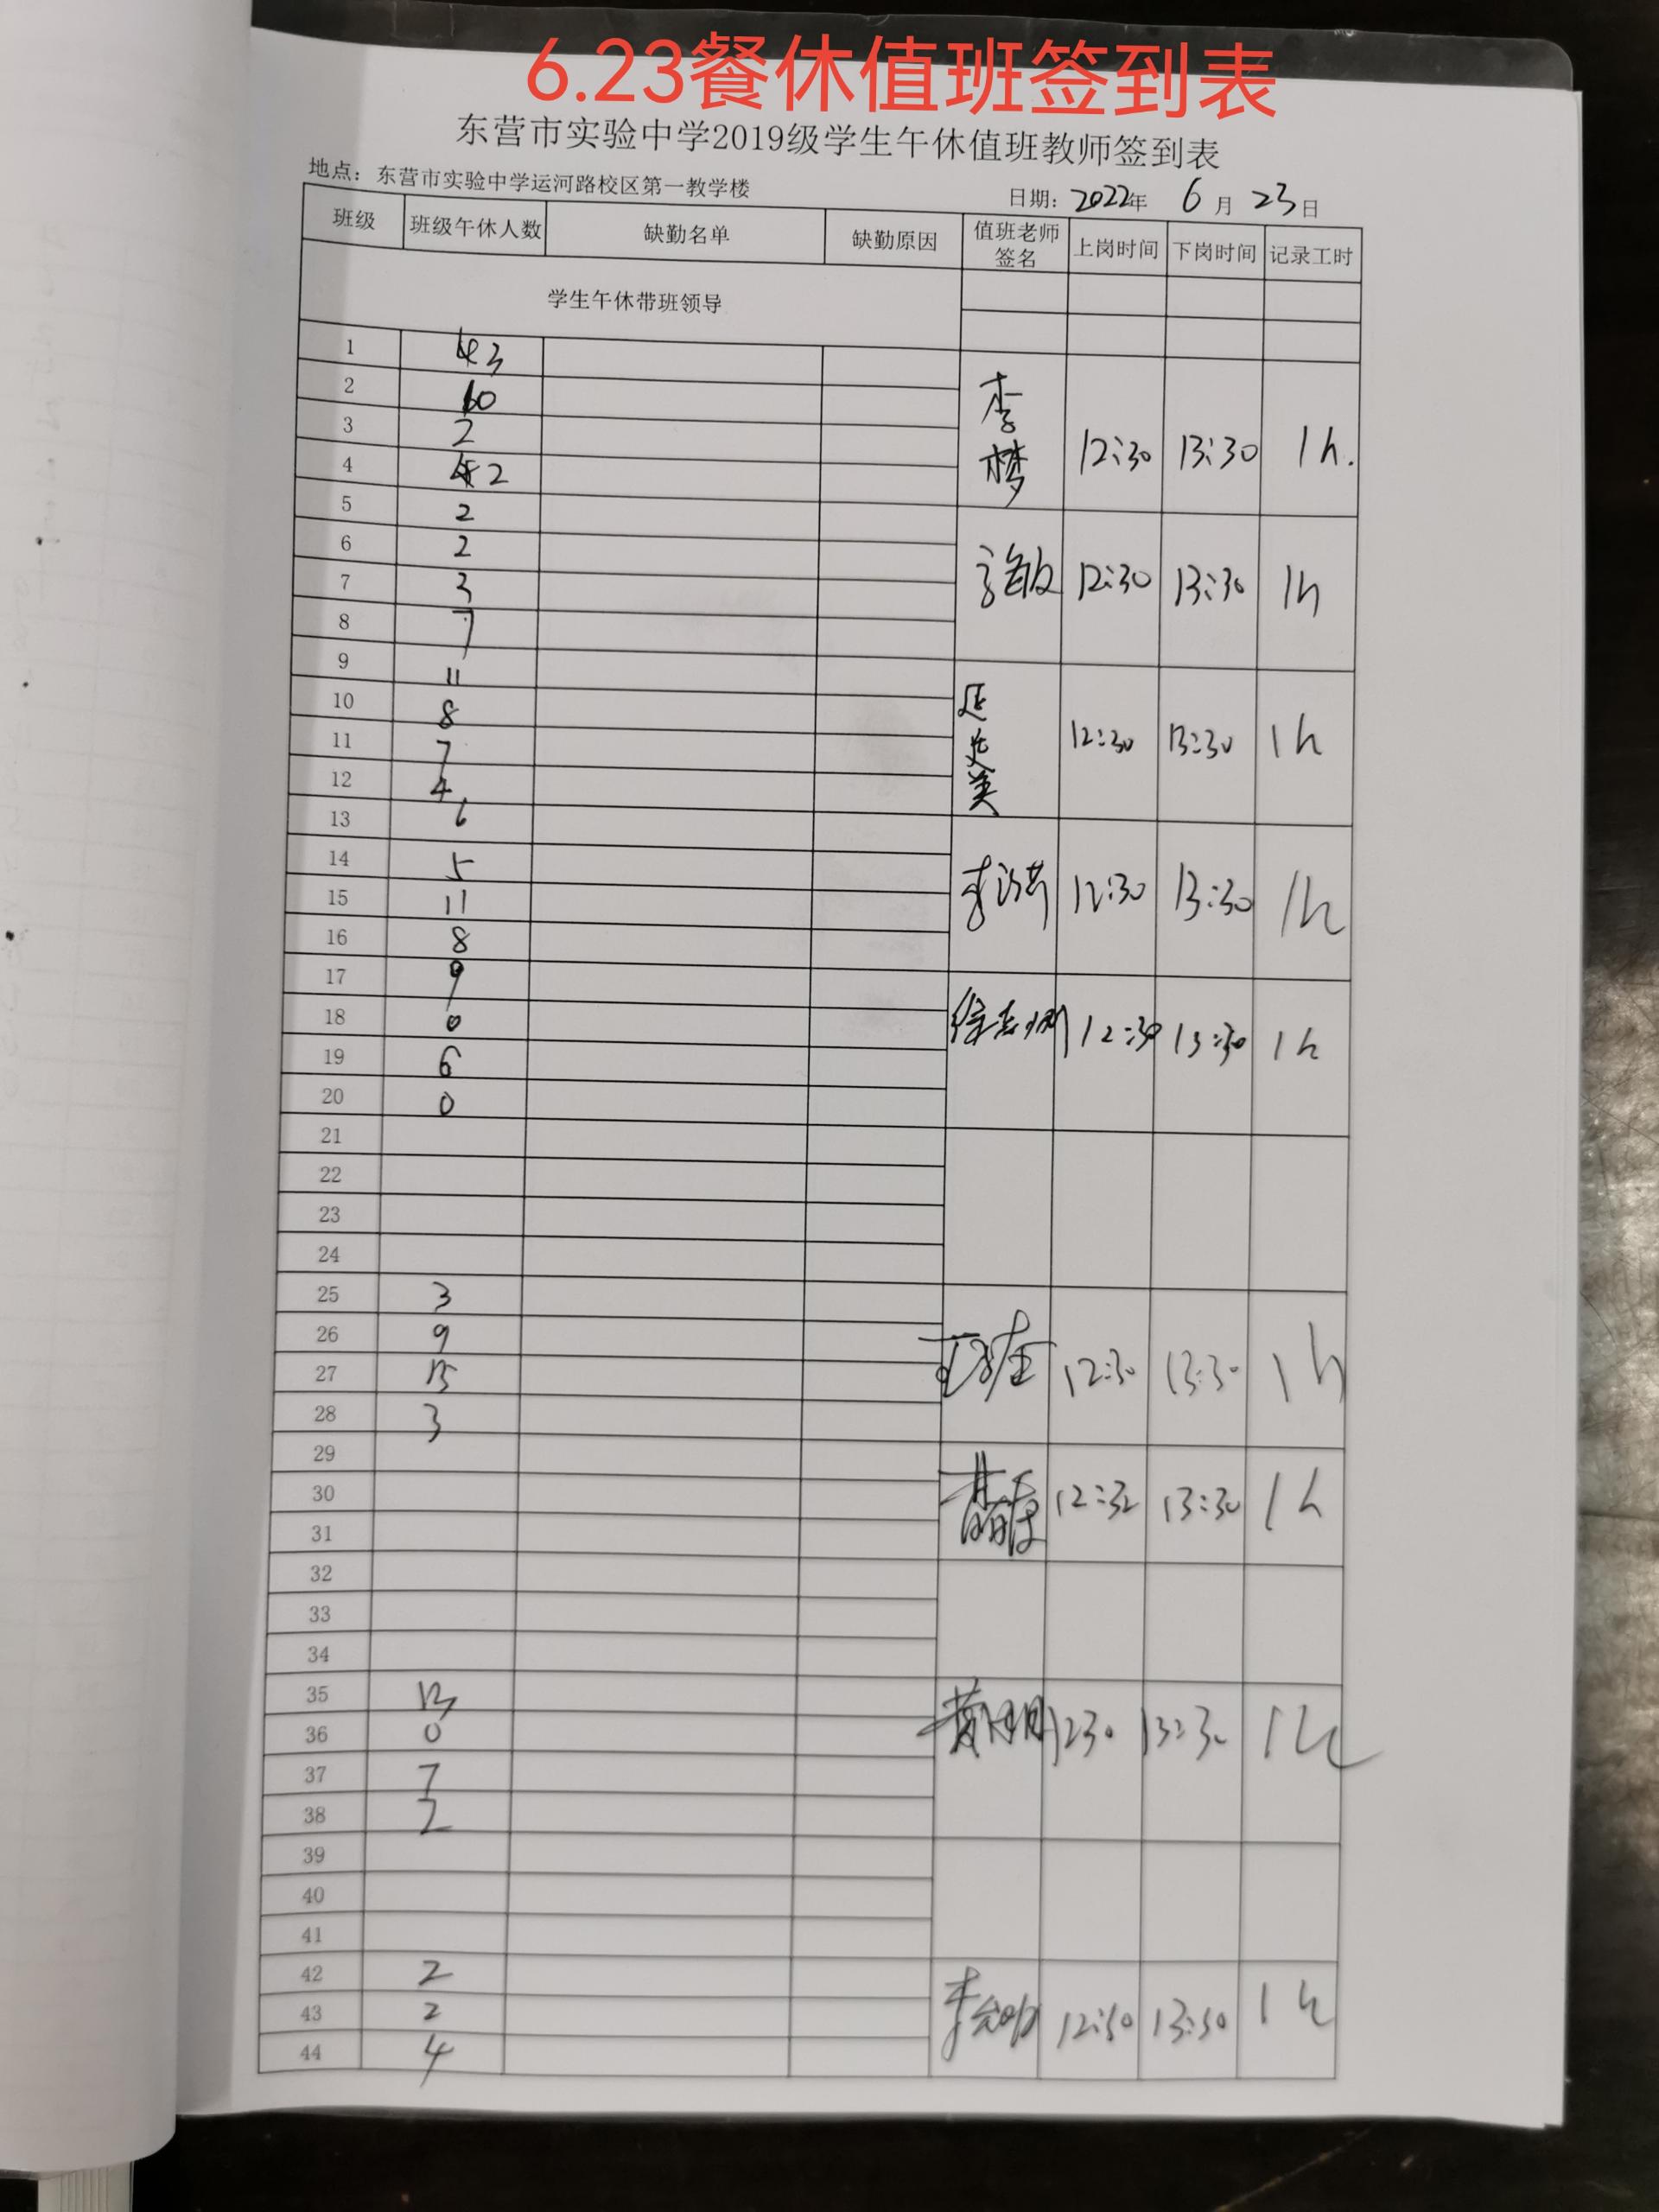 6.23餐休值班签到表
东营市实验中学2019级学生午休值班教师签到表
地点：东营市实验中学运河路校区第一教学楼 日期：2022年 6月 23日
班级 班级午休人数 缺勤名单 缺勤原因 值班老师签名 上岗时间 下岗时间 记录工时
学生午休带班领导
1 3
2 10
3 2 李梦 12:30 13:30 1h.
4 2
5 2
6 2 12:30 13:30 1h
7 3
8 7
9 11
10 8
11 7 12:30 13:30 1h
12 4
13 6
14 5
15 11 12:30 13:30 1h
16 8
17 9
18 0 12:30 13:30 1h
19 6
20 0
21
22
23
24
25 3
26 9
27 15 12:30 13:30 1h
28 3
29
30 13:30 1h
31
32
33
34
35 13
36 0 1230 13:30 1h
37 7
38 2
39
40
41
42 2
43 2 12:30 13:30 1h
44 4